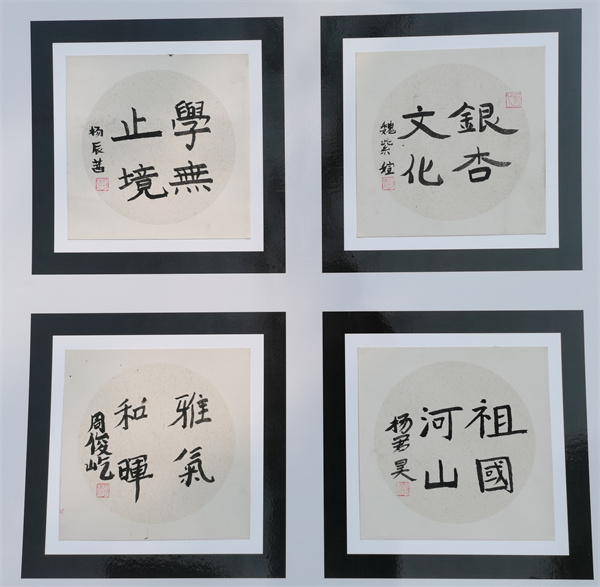 學無
止境
杨辰茜
銀杏
文化
魏紫煊
雅氣
和暉
周俊屹
祖國
河山
杨君昊